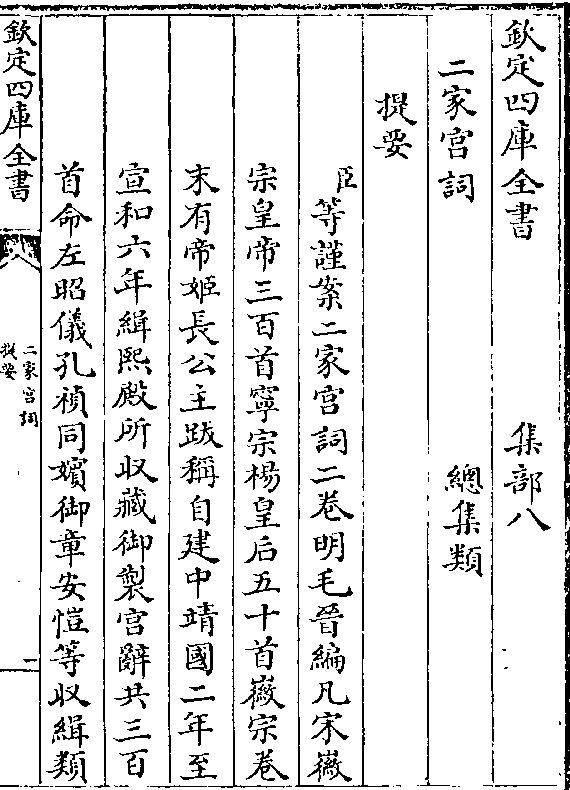 欽定四庫全書　集部八
二家宫詞　總集類
提要
臣等謹案二家宫詞二卷明毛晉編凡宋徽
宗皇帝三百首寧宗楊皇后五十首徽宗卷
末有帝姬長公主跋稱自建中靖國二年至
宣和六年緝熙殿所收藏御製宫辭共三百
首命左昭儀孔禎同嬪御章安愷等收緝類
欽定四庫全書
二家宫詞
提要
一